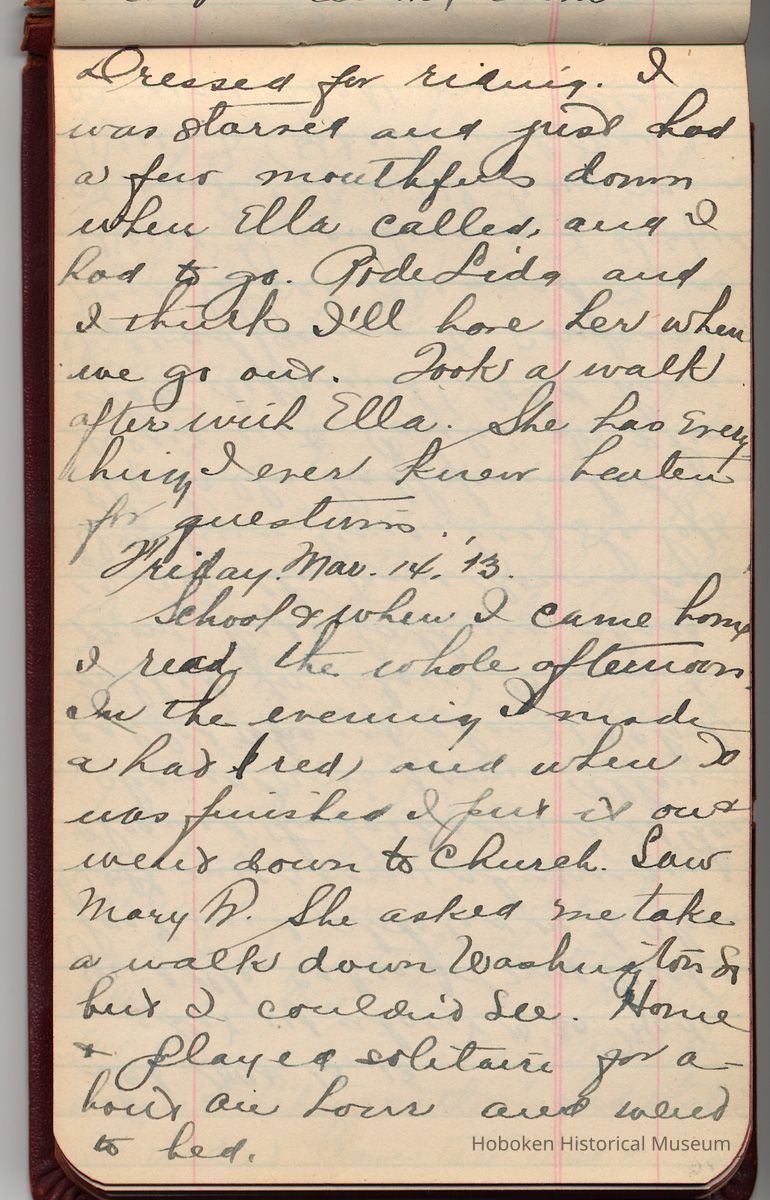 Dressed for riding. I
was starved and just had
a few mouthfuls down
when Ella called, and I
had to go. Rode Lida and
I think I'll have her when
we go out. Took a walk
after with Ella. She has every
thing I ever knew beaten
for questions.
Friday. Mar. 14, '13.
School & when I came home
I read the whole afternoon.
In the evening I made
a hat (red) and when I
was finished I put it on &
went down to church. Saw
Mary R. She asked me take
a walk down Washington St
but I couldn't see. Home
& played solitaire for a-
bout an hour and went
to bed.
Hoboken Historical Museum